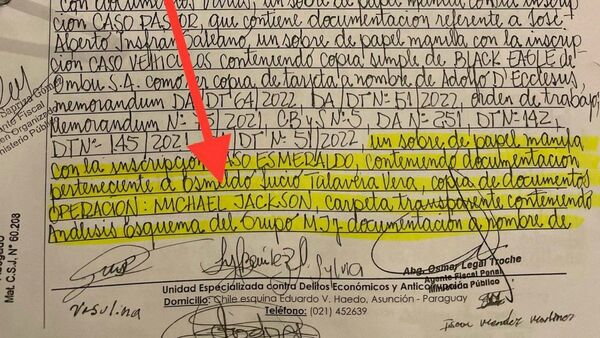 con documentos varios, un sobre de papel manila con la inscrip
ción CASO PASTOR, que contiene documentación referente a José
Alberto Insfrán Galeano, un sobre de papel manilla con la inscrip
ción CASO VEHICULOS conteniendo copia simple de BLACK EAGLE del
Embu S.A. como ser copia de tarjeta a nombre de Adolfo D'Ecclesiis,
memorandum DA/DT 64/2022, DA/DT Nº 51/2022, orden de trabajo,
Memorandum Nº 35/2021, CB y S Nº 5, DA Nº 251, DT Nº 142,
DT Nº 145/2021, DT Nº 51/2022, un sobre de papel manila
con la inscripción CASO ESMERALDO, conteniendo documentacion
perteneciente a Osmildo Lucio Talavera Vera, copia de documentos
OPERACION: MICHAEL JACKSON carpeta transparente conteniendo
Análisis Esquema del Grupo MJ y documentación a nombre de
Agente Fiscal
Ministerio Público
Mat. C.S.J. N° 60.208
Abg. Osmar Legal Troche
Agente Fiscal Penal
Ministerio Público
Sylvina
Unidad Especializada contra Delitos Económicos y Anticorrupción
Domicilio: Chile esquina Eduardo V. Haedo, Asunción - Paraguay
Teléfono: (021) 452639
Isaac Mendez Martinez